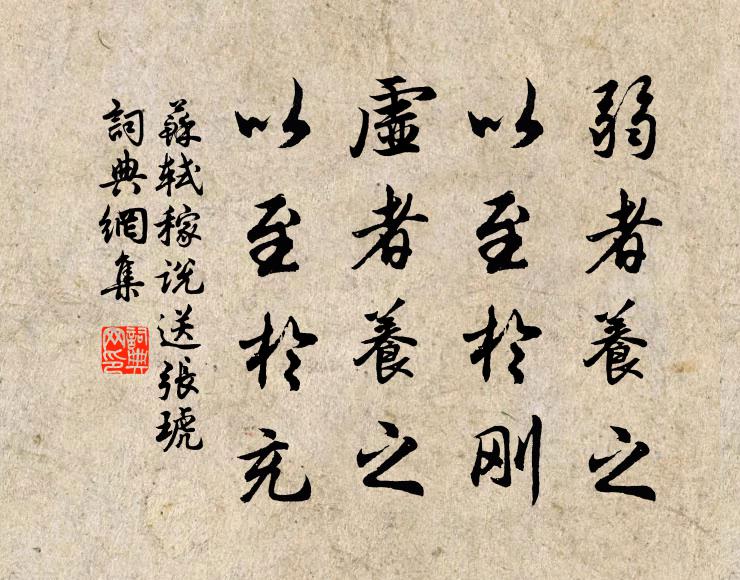 弱者養之
以至於刚
虛者養之
以至於充
蘇軾稼説送張琥
詞典網集
詞典
网印